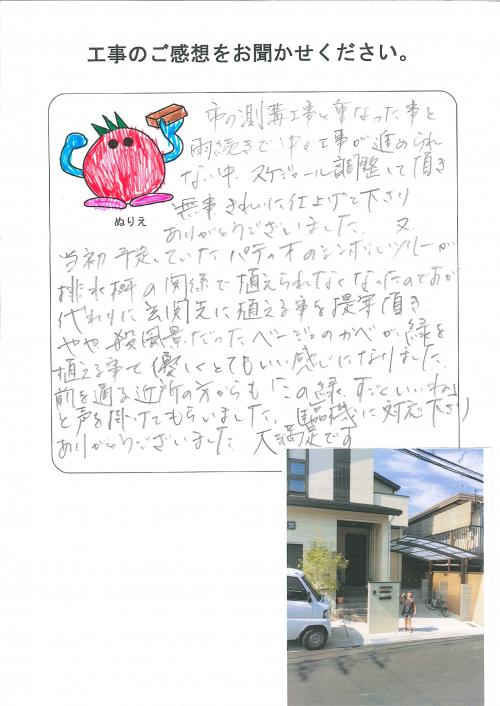 工事のご感想をお聞かせください。
市の測溝工事と重なった事と
雨続きで中々工事が進められ
ない中、スケジュール調整して頂き
無事きれいに仕上げて下さり
ありがとうございました。又、
ぬりえ
当初予定していたパティオのシンボルツリーが
排水桝の関係で植えられなくなったのですが
代わりに玄関先に植える事を提案頂き
やや殺風景だったベージュのかべが、緑を
植える事で優しくとてもいい感じになりました。
前を通る近所の方からも「この緑、すごくいいね」
と声を掛けてもらいました。臨機に対応下さり
ありがとうございました 大満足です